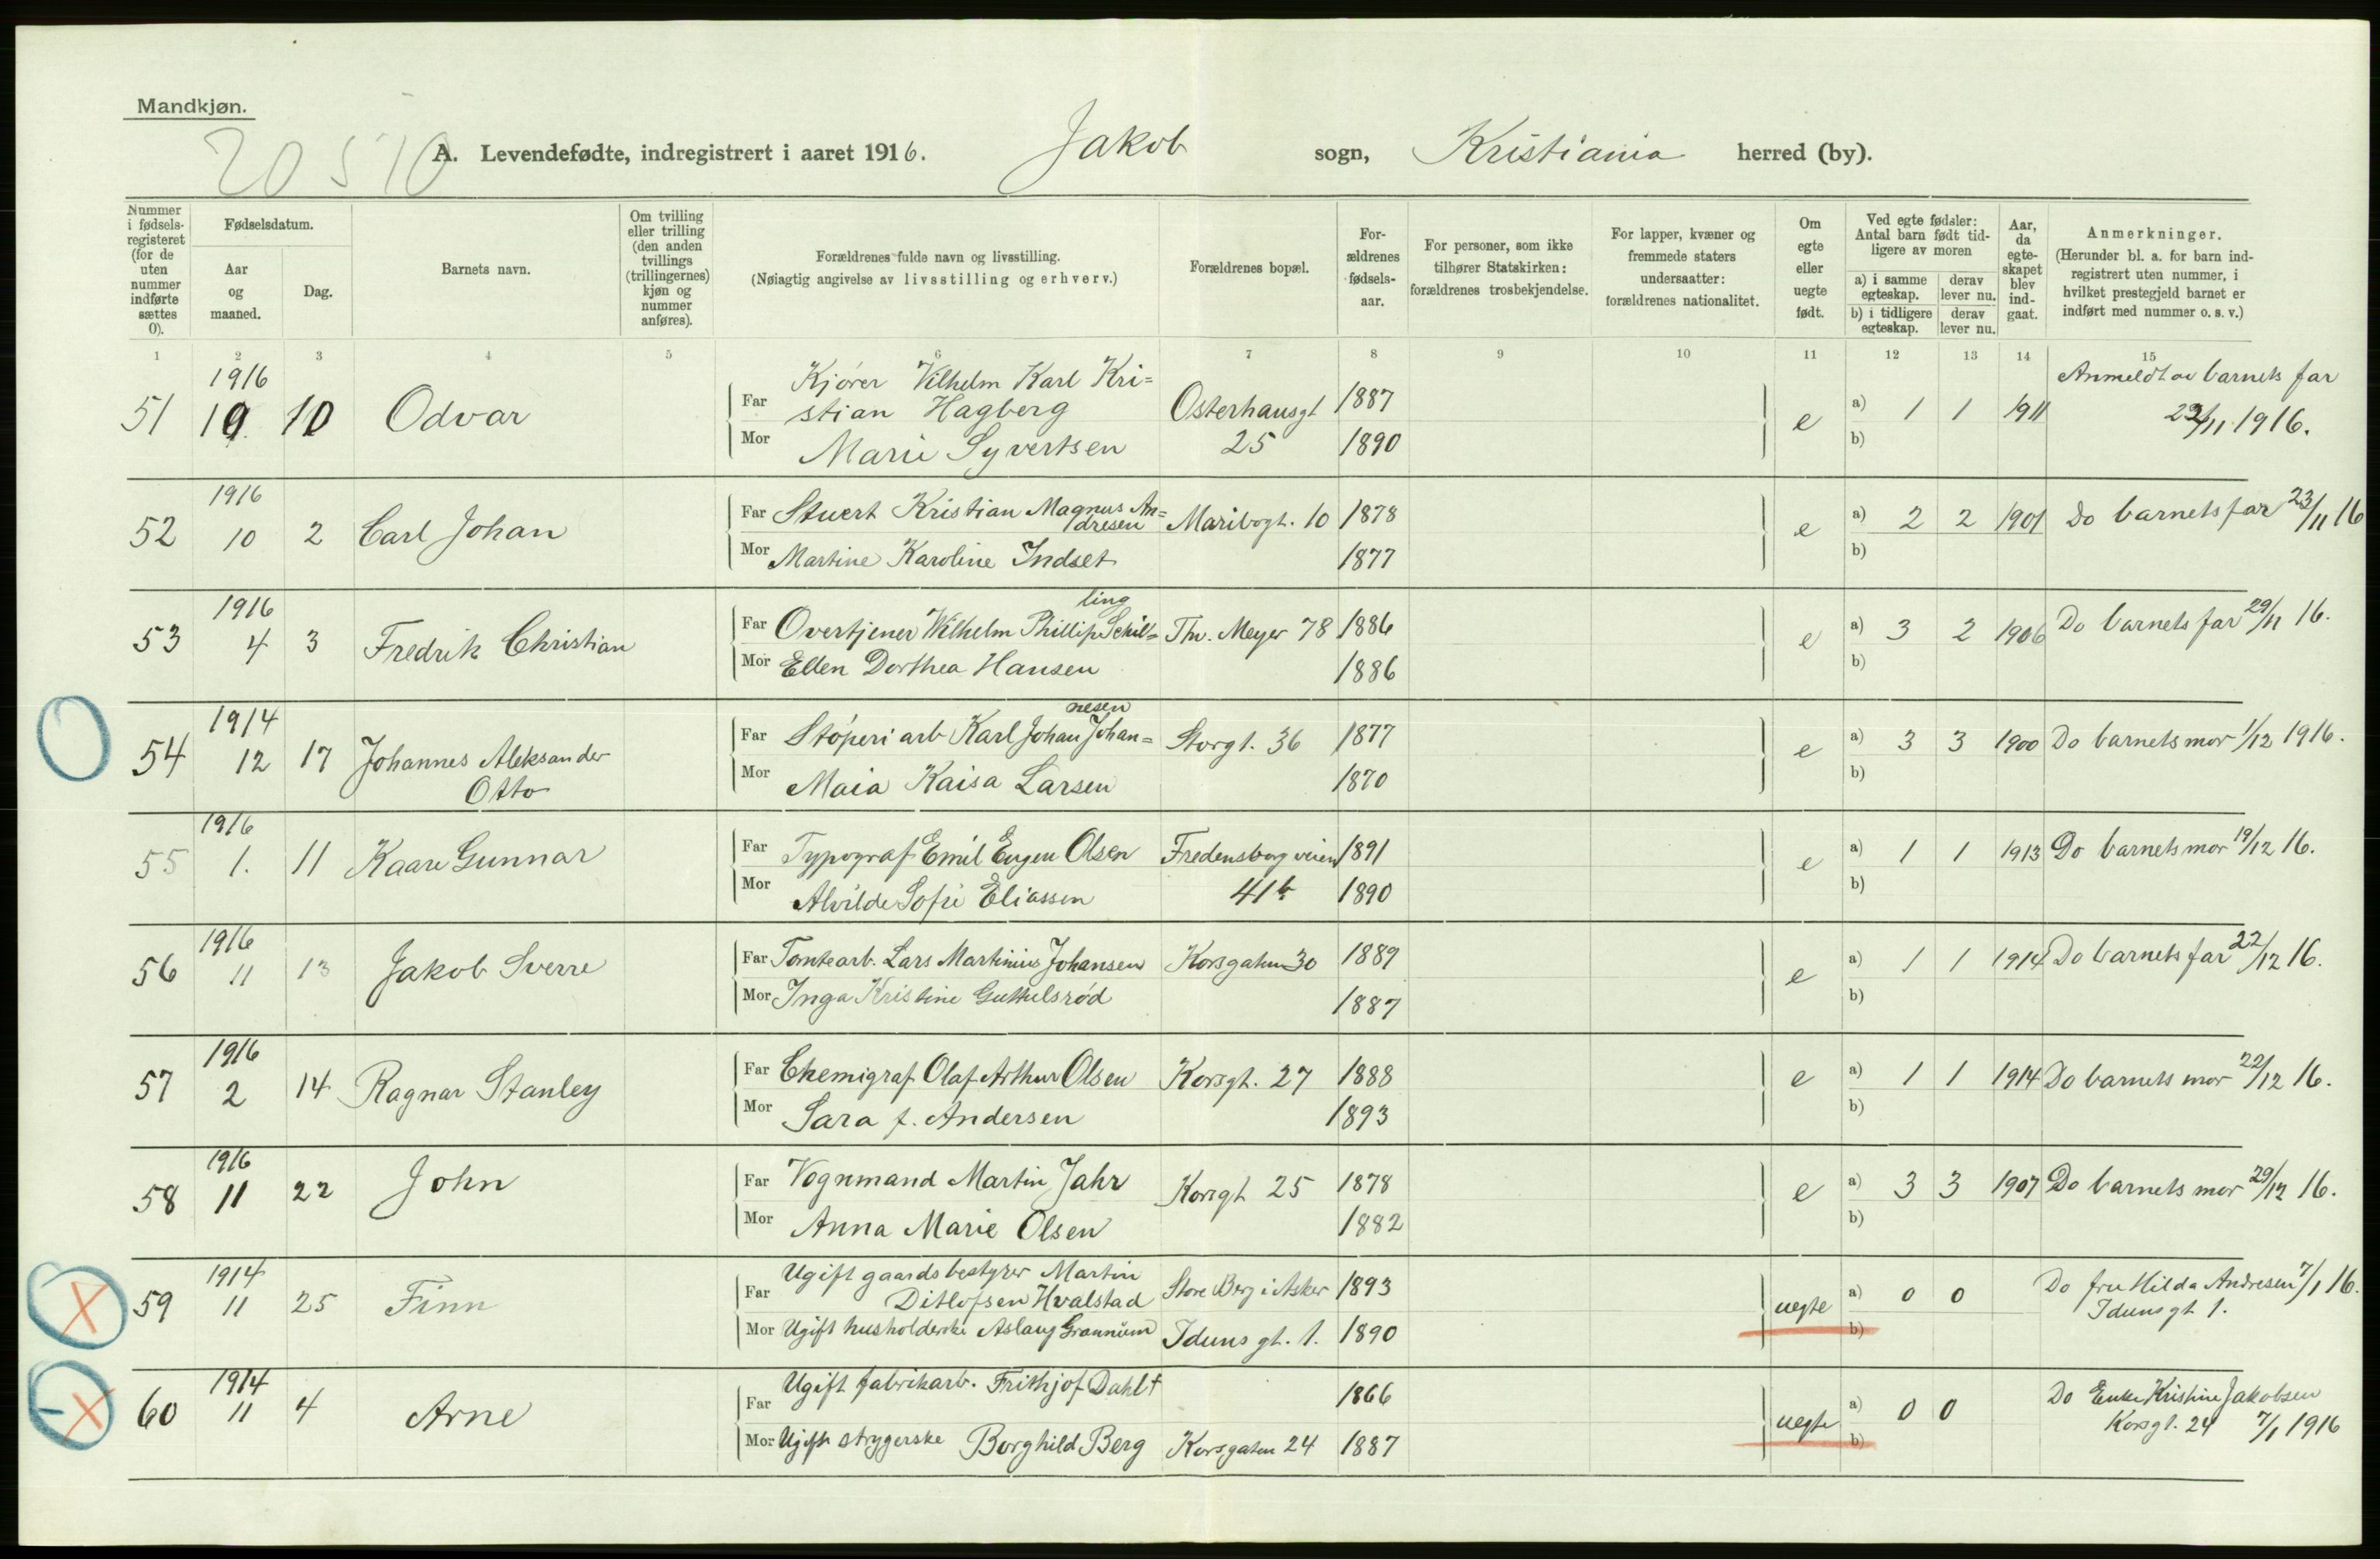 Mandkjøn.
20510
A. Levendefødte, indregistrert i aaret 1916. Jakob sogn, Kristiania herred (by).
Nummer i fødsels-registeret (for de uten nummer indførte sættes 0).
Fødselsdatum.
Aar og maaned.
Dag.
Barnets navn.
Om tvilling eller trilling (den anden tvillings (trillingernes) kjøn og nummer anføres).
Forældrenes fulde navn og livsstilling.
(Nøiagtig angivelse av livsstilling og erhverv.)
Forældrenes bopæl.
For-ældrenes fødsels-aar.
For personer, som ikke tilhører Statskirken: forældrenes trosbekjendelse.
For lapper, kvæner og fremmede staters undersaatter: forældrenes nationalitet.
Om egte eller uegte født.
Ved egte fødsler: Antal barn født tid-ligere av moren
a) i samme egteskap.
derav lever nu.
b) i tidligere egteskap.
derav lever nu.
Aar, da egte-skapet blev ind-gaat.
Anmerkninger.
(Herunder bl. a. for barn ind-registrert uten nummer, i hvilket prestegjeld barnet er indført med nummer o. s. v.)
1 2 3 4 5 6 7 8 9 10 11 12 13 14 15
1916 Kjører Vilhelm Karl Kri= Anmeldt av barnets far
51 10 Odvar Far stian Hagberg Osterhausgt 1887 e a) 1 1 1911 /11 1916.
Mor Marie Syvertsen 25 1890 b)
1916
52 10 2 Carl Johan Far Stuert Kristian Magnus An=dresen Maribogt. 10 1878 e a) 2 2 1901 Do barnets far 23/11 16
Mor Martine Karoline Indset 1877 b)
1916 ling
53 4 3 Fredrik Christian Far Overtjener Wilhelm Phillip Schil= Thv. Meyer 78 1886 e a) 3 2 1906 Do barnets far 29/11 16.
Mor Ellen Dorthea Hansen 1886 b)
1914 nesen
54 12 17 Johannes Aleksander Far Støperiarb Karl Johan Johan= Storgt. 36 1877 e a) 3 3 1900 Do barnets mor 1/12 1916.
Otto Mor Maia Kaisa Larsen 1870 b)
1916
55 1. 11 Kaare Gunnar Far Typograf Emil Eugen Olsen Fredensborgveien 1891 e a) 1 1 1913 Do barnets mor 19/12 16.
Mor Alvilde Sofie Eliassen 41b 1890 b)
1916
56 11 13 Jakob Sverre Far Tomtearb. Lars Martinius Johansen Korsgaten 30 1889 e a) 1 1 1914 Do barnets far 22/12 16.
Mor Inga Kristine Guttulsrød 1887 b)
1916
57 2 14 Ragnar Stanley Far Chemigraf Olaf Arthur Olsen Korsgt. 27 1888 e a) 1 1 1914 Do barnets mor 22/12 16.
Mor Sara f. Andersen 1893 b)
1916
58 11 22 John Far Vognmand Martin Jahr Korsgt 25 1878 e a) 3 3 1907 Do barnets mor 29/12 16.
Mor Anna Marie Olsen 1882 b)
1914 Ugift gaardsbestyrer Martin
59 11 25 Finn Far Ditlofsen Hvalstad Store Berg i Asker 1893 uegte a) 0 0 Do fru Hilda Andresen 7/1 16.
Mor Ugift husholderske Aslaug Idunsgt. 1. 1890 b) Idunsgt 1.
1914 Ugift fabrikarb. Frithjof Dahl †
60 11 4 Arne Far 1866 uegte a) 0 0 Do Enke Kristine Jakobsen
Mor Ugift strygerske Borghild Berg Korsgaten 24 1887 b) Korsgt. 24 7/1 1916